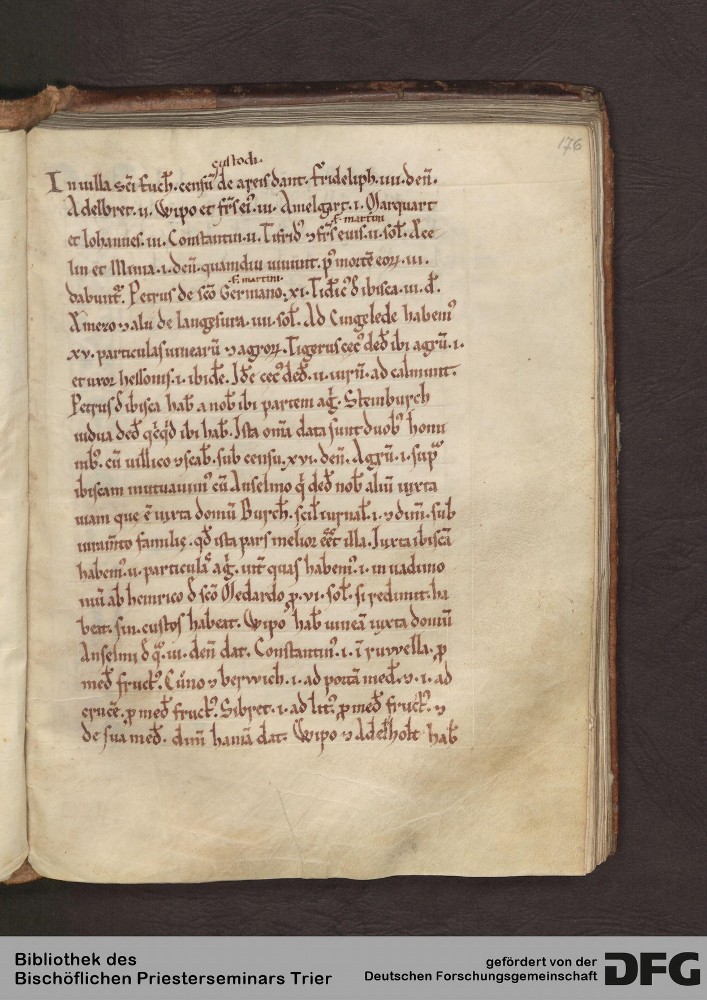 176
custodi.
In villa sc̄i Euch̄. censū de areis dant. Frideliph. iiii. den̄.
Adelbret. ii. Wipo et fr̄s ei᾿. iii. Amelgart. i. Marquart
f. martini
et Iohannes. iii. Constantin. ii. Tifrid᾿ ⁊ fr̄s eius. ii. sol̄. Ace
lin et Mima. i. den̄. quamdiu uiuunt. p᾿ mortē eoꝝ. iii.
f. martini.
dabunt᷑. Petrus de sc̄o Germano. xi. Tidic᾿ đ ibisca. iii. đ.
⁊ alii de langesura. iiii. sol̄. Ad Cingelede habem᾿
xv. particulas uinearū ⁊ agroꝝ. Tigerus cec᾿ ded̄ ibi agrū. i.
et uxor hessonis. i. ibidē. Idē cec᾿ ded̄. ii. iurū. ad calmunt.
Petrus đ ibisca hab̄ a nob̄ ibi partem aḡ. Steinburch
uidua ded̄ qcqd ibi hab̄. Ista om̄a data sunt duob᾿ homi
nib᾿. cū uillico ⁊ scab̄. sub censu. xvi. den̄. Agrū. i. sup̄
ibiscam mutuauim᾿ cū Anselmo q̄ ded̄ nob̄ aliū iuxta
uiam que ē iuxta domū Burch̄. scil̄ iurnal̄. i. ⁊ dim̄. sub
iuram̄to familię. qđ ista pars melior eēt illa. Iuxta ibiscā
habem᾿. ii. particulas aḡ. uit̄ quas habem᾿. i. in uadimo
niū ab heinrico đ sc̄o Medardo ꝓ. vi. sol̄. si redimit. ha
beat. sin. custos habeat. Wipo hab̄ uineā iuxta domū
Anselmi đ q̄. iii. den̄ dat. Constantin᾿. i. ī ruwella. ꝓ
med̄ fruct᾿. Cūno ⁊ berwich. i. ad portā med̄. ⁊. i. ad
crucē. ꝓ med̄ fruct᾿. Sibret. i. ad lit᾿. ꝓ med̄ fruct᾿. ⁊
de sua med̄. dim̄ hamā dat. Wipo ⁊ Adelholt hab̄
Bibliothek des
Bischöflichen Priesterseminars Trier
gefördert von der
Deutschen Forschungsgemeinschaft
DFG